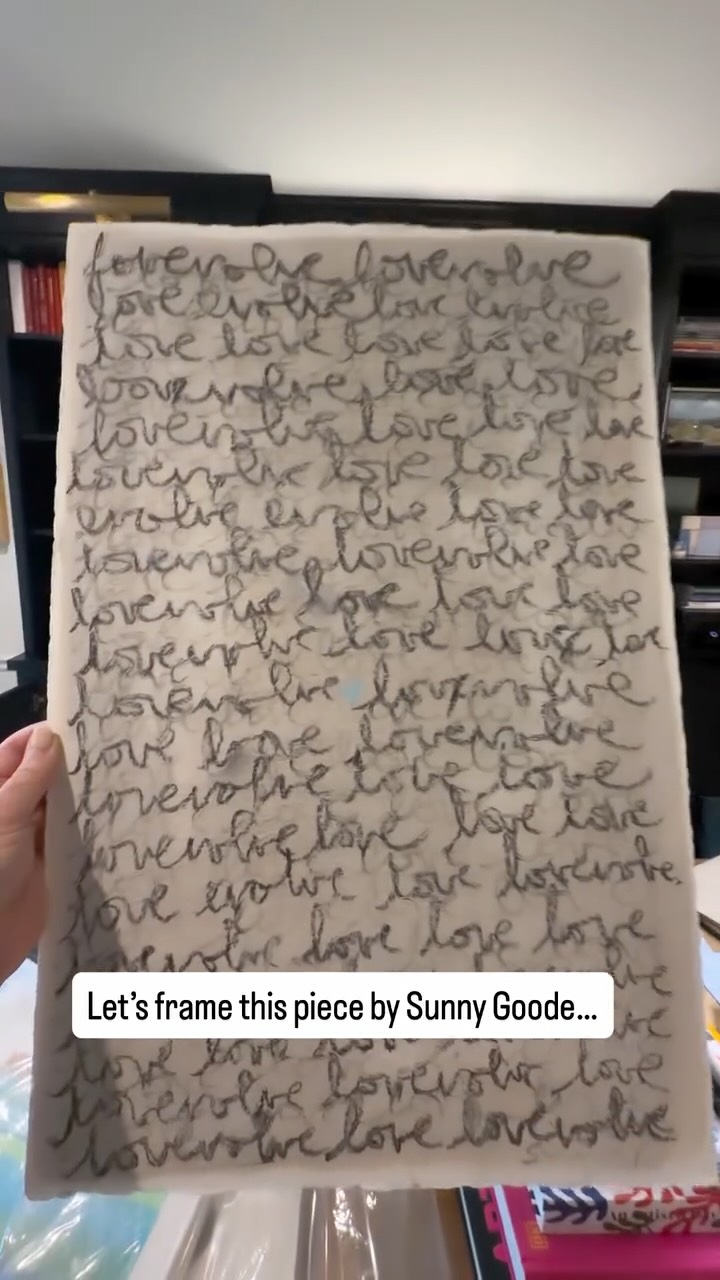 lovevolve lovevolve
love evolve love evolve
love love love love love
lovevolve love love
lovevolve love love love
lovevolve love love love
evolve evolve love love
lovevolve lovevolve love
lovevolve love love love
lovevolve love love love
lovevolve lovevolve
love love lovevolve
lovevolve love love
lovevolve love love love
love evolve love lovevolve
lovevolve love love love
Let's frame this piece by Sunny Goode...
love love
lovevolve lovevolve love
lovevolve love lovevolve